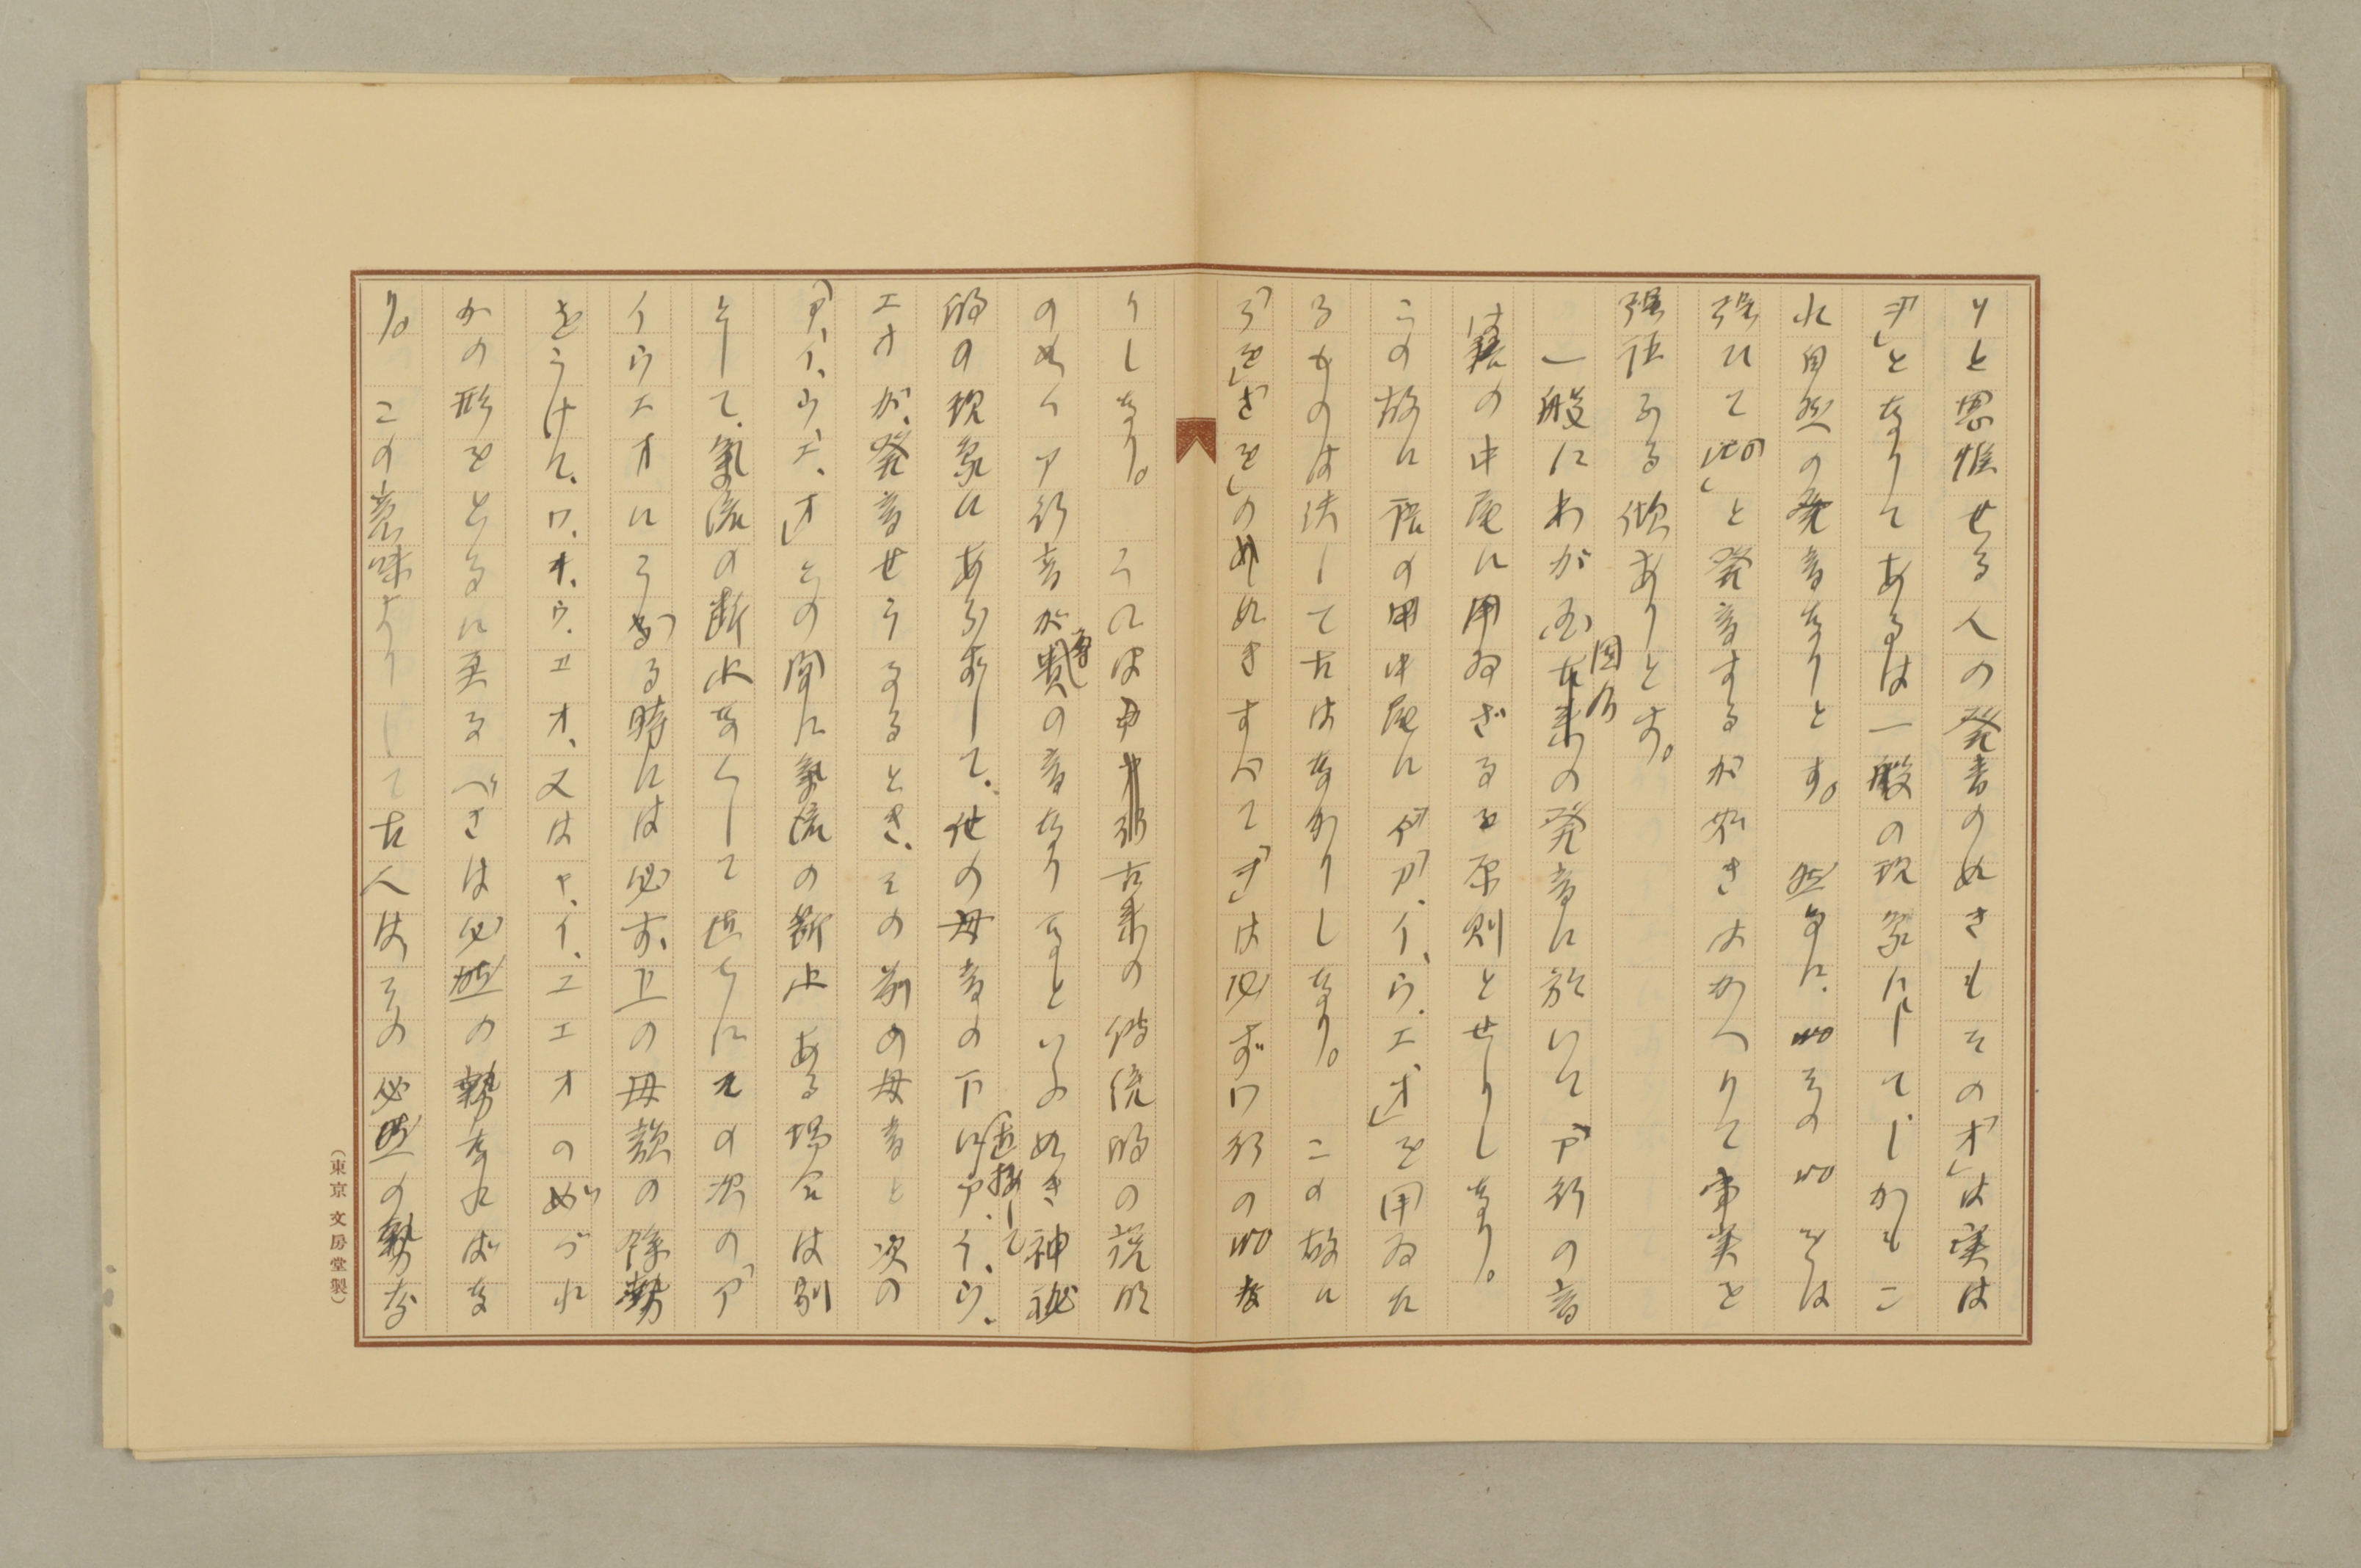 りと思惟せる人の発音のめきもその「オ」は実は
「ヲ」となりてあるは一般の現象にして、しかもこ
れ自然の発音なりとす。然るに、woその wo をは
強ひて「此の」と発音するが如きはかへりて事実を
強圧する傾ありとす。
一般にわが国古来の発音に於いて「ア行の音
は語の中尾に用ゐざるを原則とせりしなり。
この故に語の中尾に「ア、イ、ウ、エ、オ」を用ゐた
るものは決して古はなかりしなり。この故に
「とを」「さを」の如きすべて「を」は必ずワ行の wo な
りしなり。そは古来の伝統的の説明
の如くア行音が貴の音なりなどいふ如き神秘
的の現象にあらずして、他の母音の下に直接してア、イ、ウ、
エオが、発音せらるるとき、その前の母音と次の
「ア、イ、ウ、エ、オ」との間に気流の断止ある場合は別
として、気流の断止なくして直ちにその次の「ア
イウエオにうつる時には必ず、上の母韻の余勢
をうけて、ワ、ヰ、ウ、ヱ、ヲ、又はヤ、イ、ユ、エ、ヨのいづれ
かの形をとるに至るべきは必然の勢なればな
り。この意味よりして古人はその必然の勢な
(東京文房堂製)